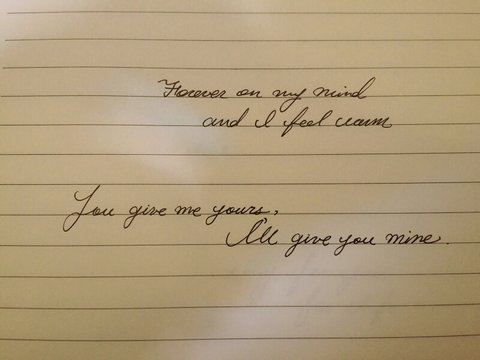 Forever on my mind
and I feel warm
You give me yours,
I'll give you mine.